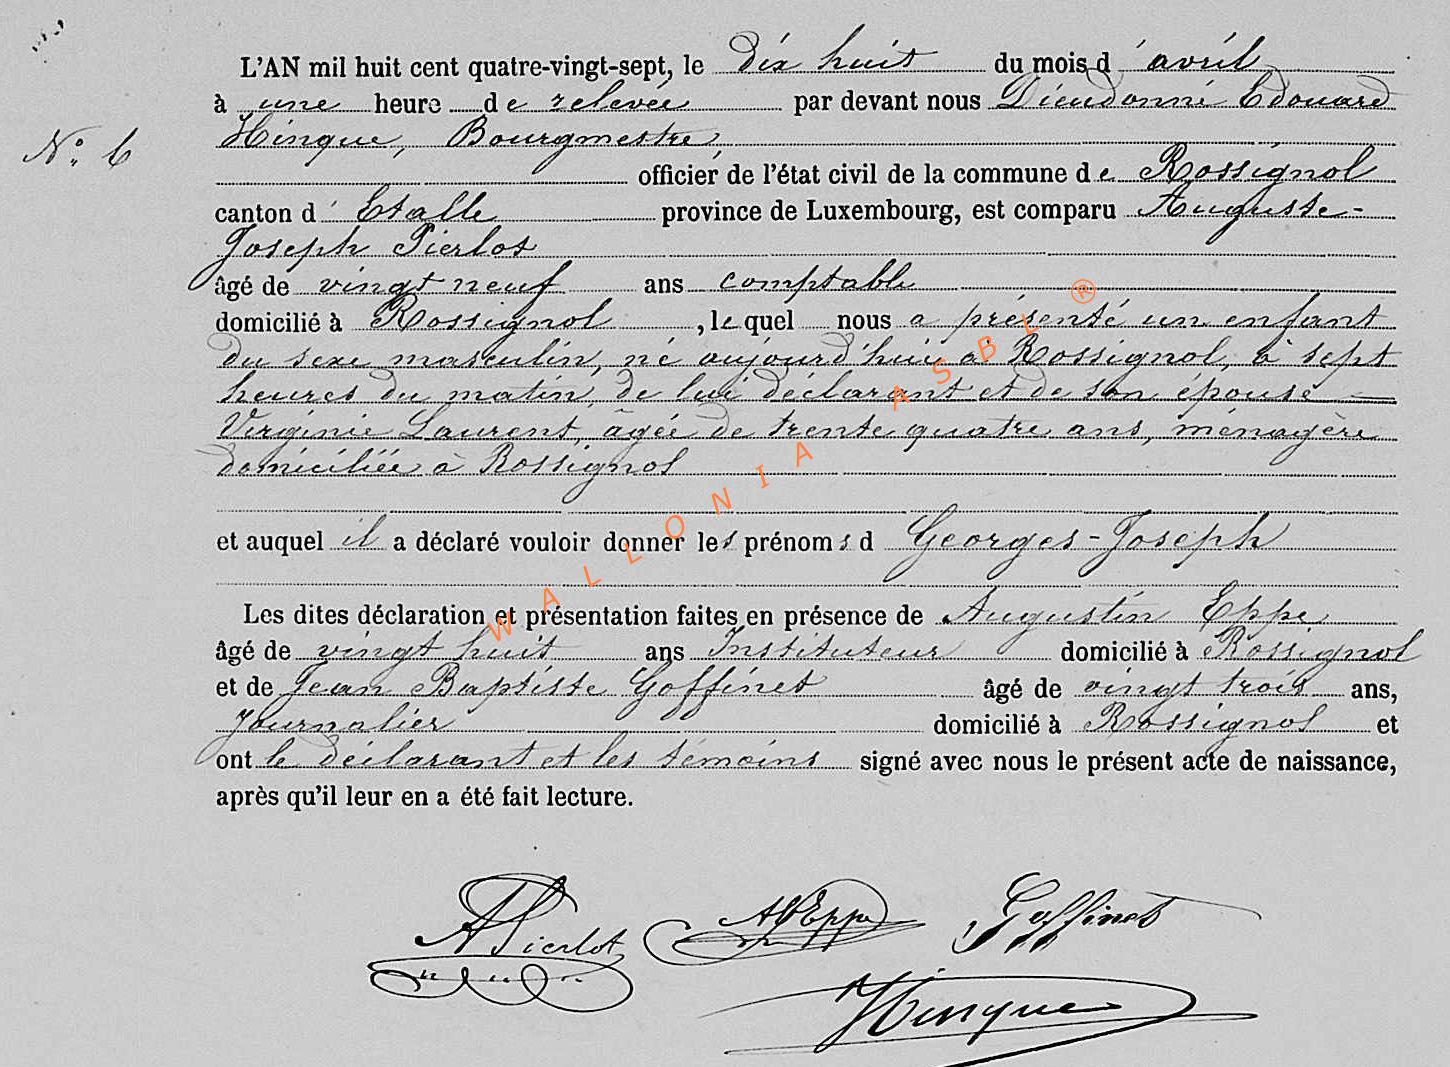 L'AN mil huit cent quatre-vingt-sept, le dix huit du mois d'avril
à une heure de relevée par devant nous Dieudonné Edouard
N° 6
Hinque, Bourgmestre,
officier de l'état civil de la commune de Rossignol
canton d'Etalle province de Luxembourg, est comparu Auguste-
Joseph Pierlot
âgé de vingt neuf ans comptable
domicilié à Rossignol, lequel nous a présenté un enfant
du sexe masculin, né aujourd'hui à Rossignol, à sept
heures du matin, de lui déclarant et de son épouse —
Virginie Laurent, âgée de trente quatre ans, ménagère
domiciliée à Rossignol
et auquel il a déclaré vouloir donner les prénoms d Georges-Joseph
Les dites déclaration et présentation faites en présence de Augustin Eppe
âgé de vingt huit ans Instituteur domicilié à Rossignol
et de Jean Baptiste Goffinet âgé de vingt trois ans,
Journalier domicilié à Rossignol et
ont le déclarant et les témoins signé avec nous le présent acte de naissance,
après qu'il leur en a été fait lecture.
APierlot AEppe Goffinet
Hinque
WALLONIA ASBL ®